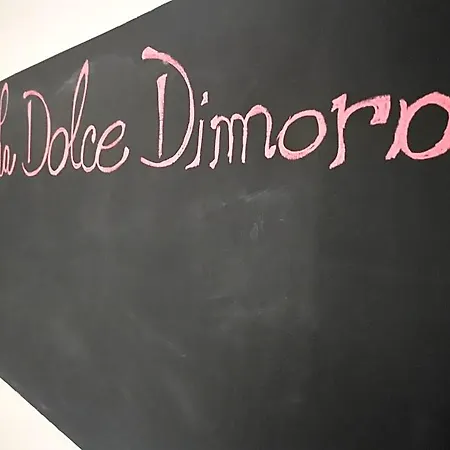 la Dolce Dimora